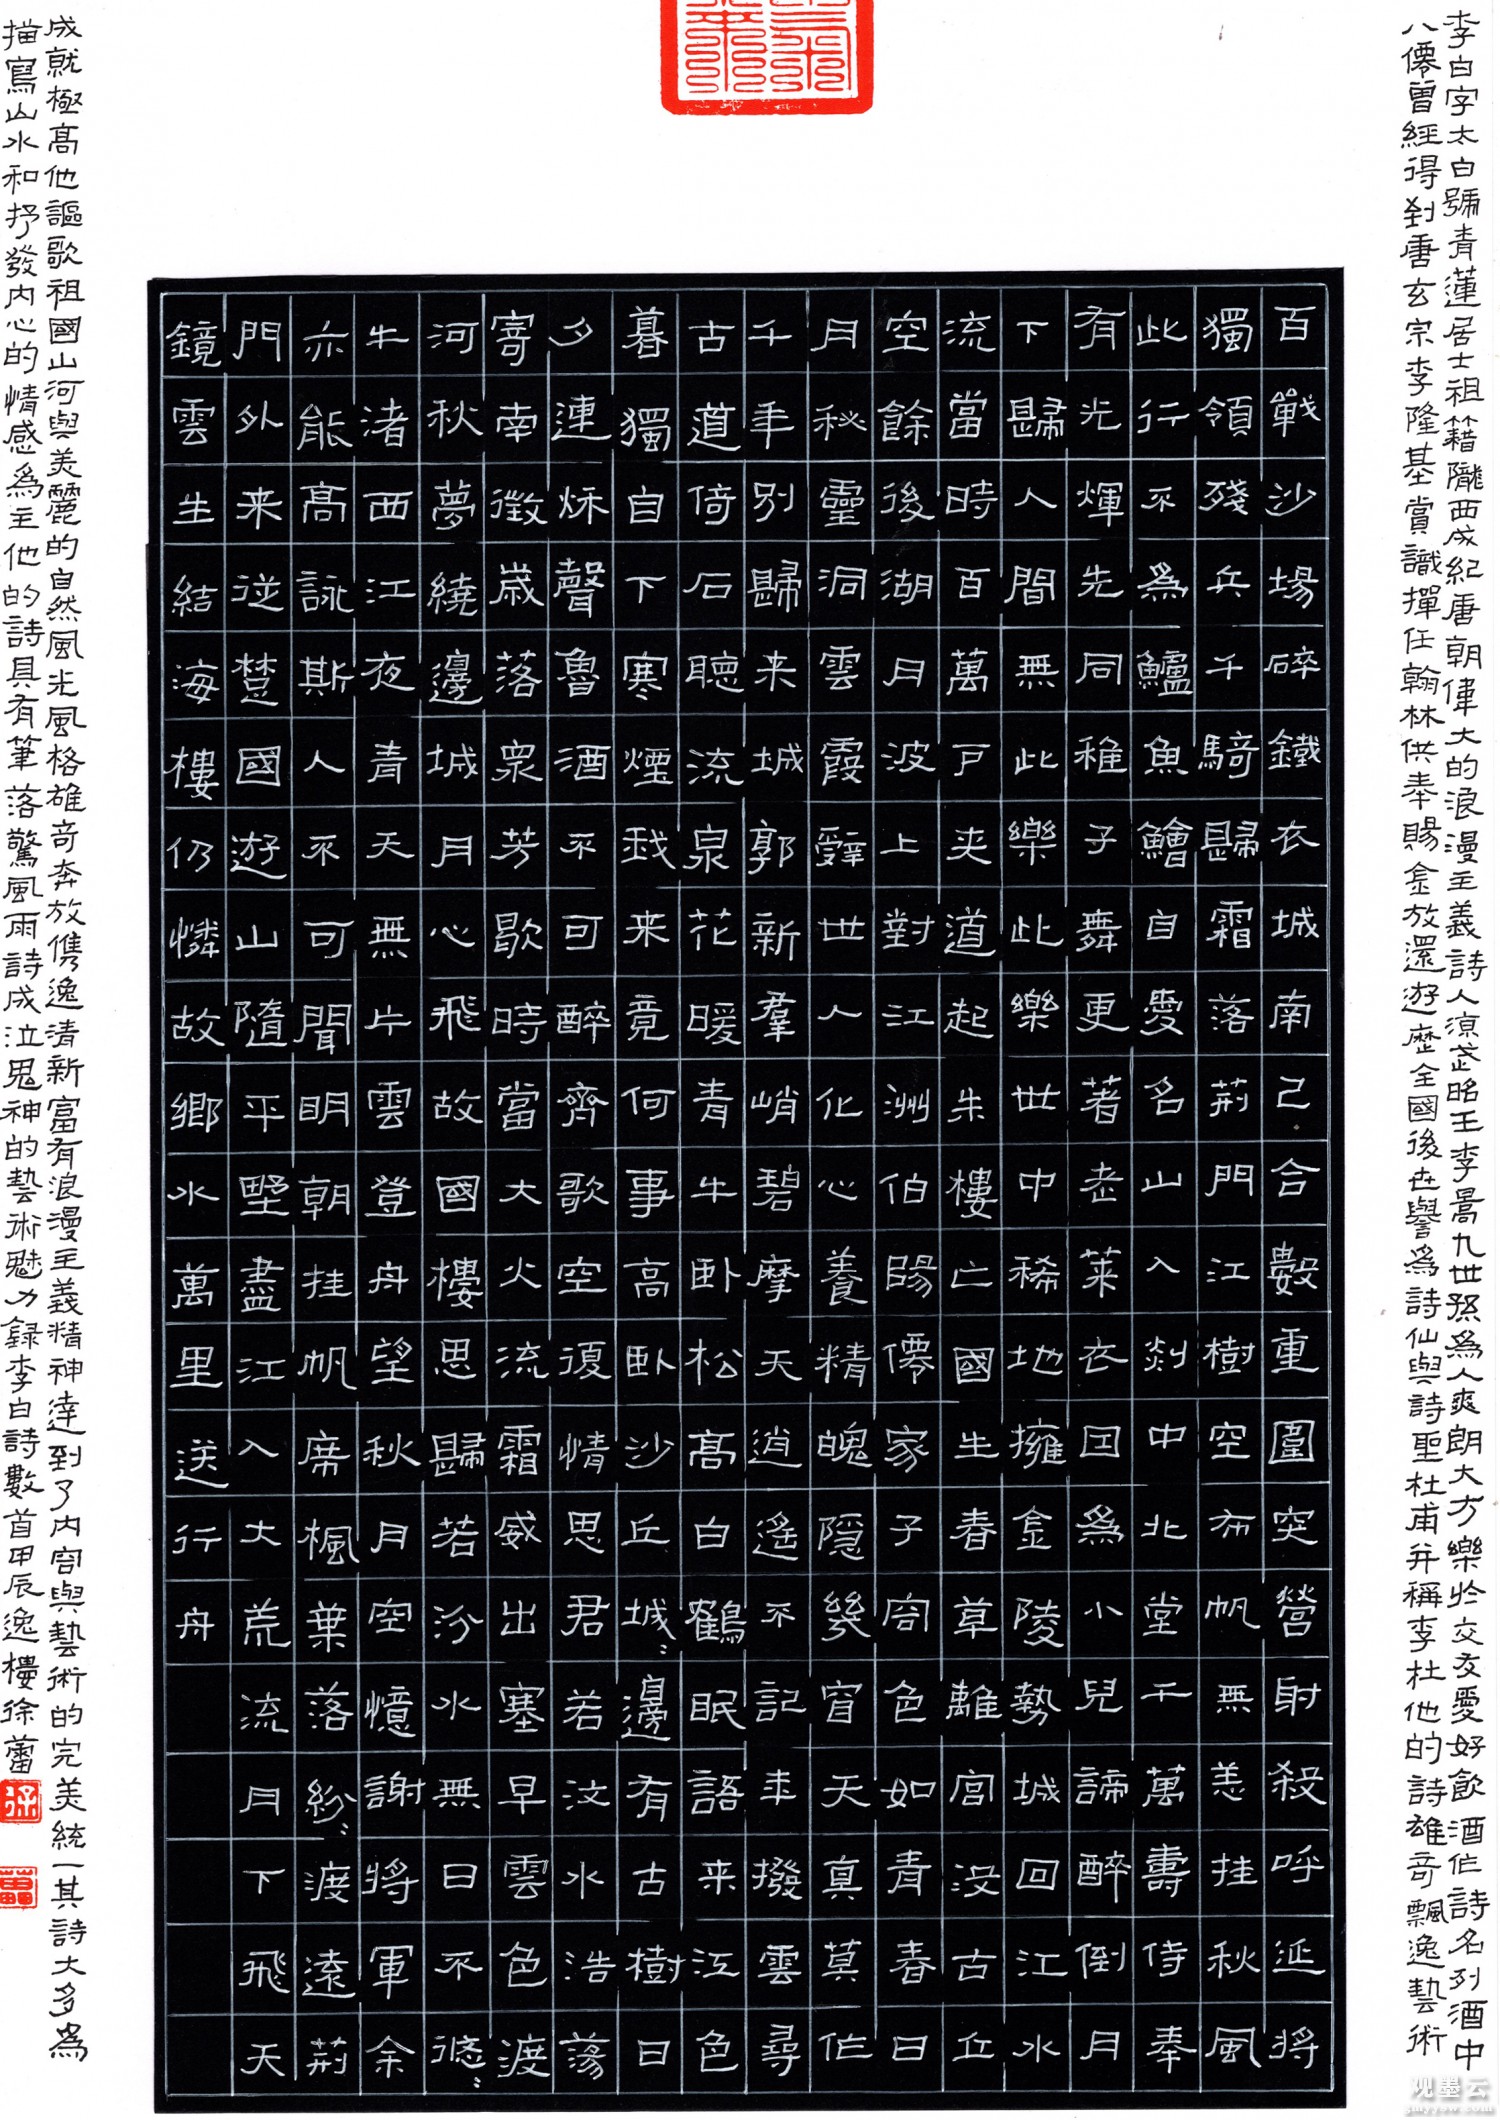 李白字太白號青蓮居士祖籍隴西成紀唐朝偉大的浪漫主義詩人涼武昭王李暠九世孫為人爽朗大方樂於交友愛好飲酒作詩名列酒中
八僊曾經得到唐玄宗李隆基賞識擔任翰林供奉賜金放還遊歷全國後世譽為詩仙與詩聖杜甫并稱李杜他的詩雄奇飄逸藝術
百戰沙場碎鐵衣城南已合數重圍突營射殺呼延將
獨領殘兵千騎歸霜落荊門江樹空布帆無恙挂秋風
此行不為鱸魚鱠自愛名山入剡中北堂千萬壽侍奉
有光輝先同稚子舞更著老萊衣囙為小兒諦醉倒月
下歸人間無此樂此樂世中稀地擁金陵勢城回江水
流當時百萬戶夾道起朱樓亡國生春草離宮沒古丘
空餘後湖月波上對江洲伯陽僊家子容色如青春日
月秘靈洞雲霞辭世人化心養精魄隱几窅天真莫作
千年別歸来城郭新羣峭碧摩天逍遙不記年撥雲尋
古道倚石聽流泉花暖青牛卧松高白鶴眠語来江色
暮獨自下寒煙我来竟何事高卧沙丘城〻邊有古樹日
夕連秌聲魯酒不可醉齊歌空復情思君若汶水浩蕩
寄南徵歲落衆芳歇時當大火流霜威出塞早雲色渡
河秋夢繞邊城月心飛故國樓思歸若汾水無日不悠〻
牛渚西江夜青天無片雲登舟望秋月空憶謝將軍余
亦能高詠斯人不可聞明朝挂帆席楓葉落紛〻渡遠荊
門外来從楚國遊山隨平野盡江入大荒流月下飛天
鏡雲生結海樓仍憐故鄉水萬里送行舟
成就極高他謳歌祖國山河與美麗的自然風光風格雄奇奔放儁逸清新富有浪漫主義精神達到了內容與藝術的完美統一其詩大多為
描寫山水和抒發內心的情感為主他的詩具有筆落驚風雨詩成泣鬼神的藝術魅力錄李白詩數首甲辰逸樓徐蕾
观墨云
gmyyow.com